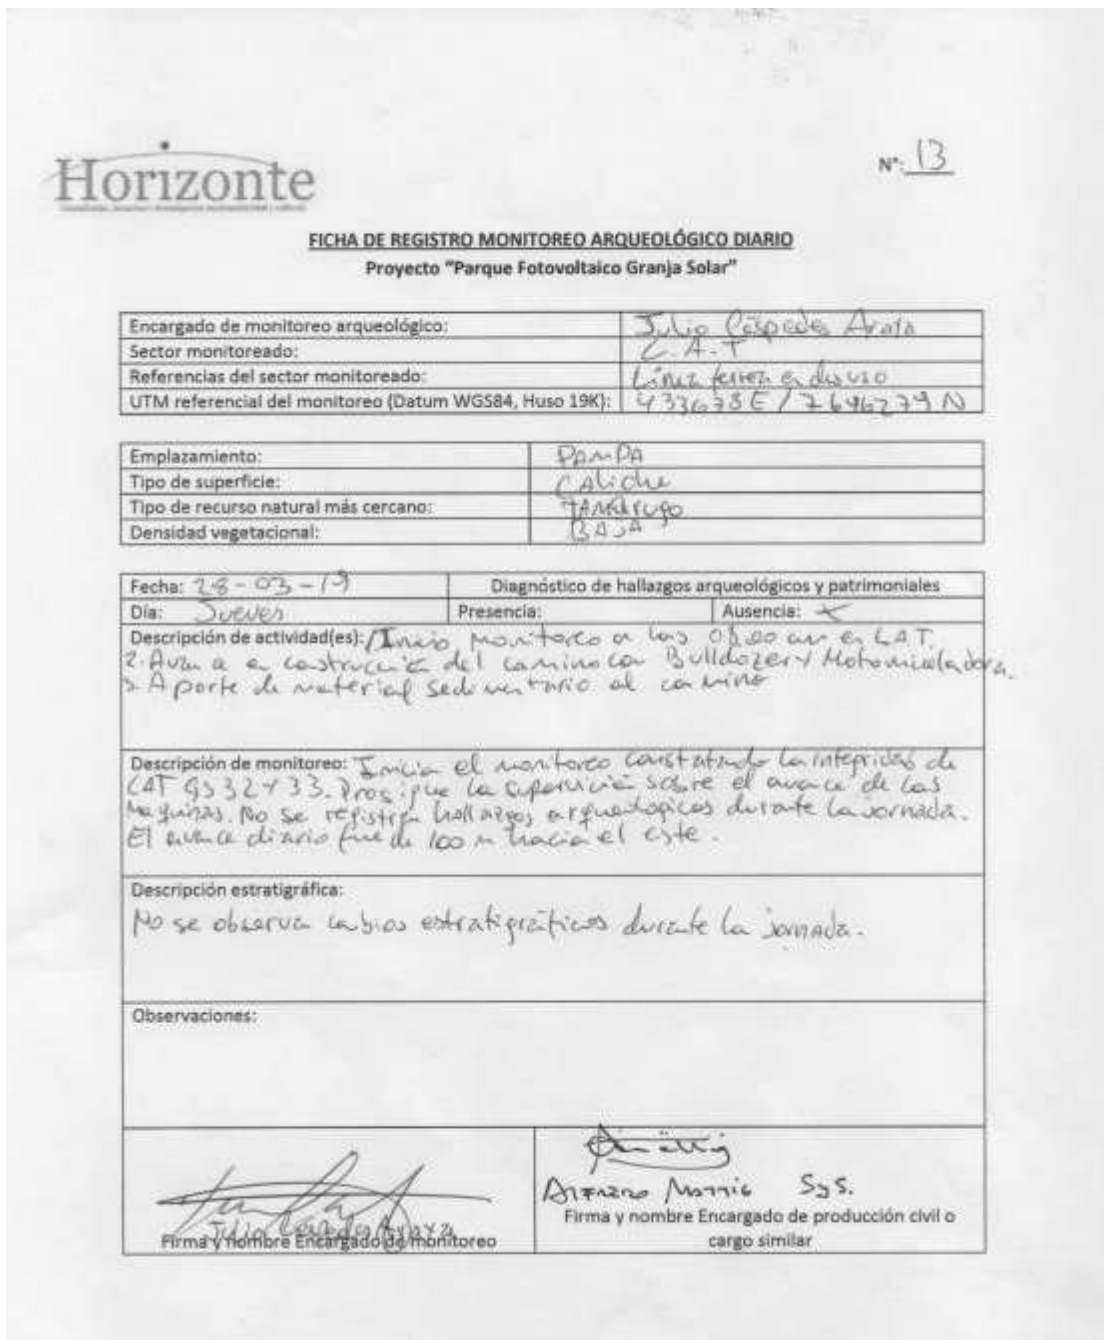 Horizonte
N°: 13
FICHA DE REGISTRO MONITOREO ARQUEOLÓGICO DIARIO
Proyecto "Parque Fotovoltaico Granja Solar"
Encargado de monitoreo arqueológico: Julio Céspedes Araya
Sector monitoreado: L.A.T
Referencias del sector monitoreado: Línea ferrea en desuso
UTM referencial del monitoreo (Datum WGS84, Huso 19K): 433678E / 7646279 N
Emplazamiento: PAMPA
Tipo de superficie: CAliche
Tipo de recurso natural más cercano: TAMArugo
Densidad vegetacional: BAJA
Fecha: 28-03-19 Diagnóstico de hallazgos arqueológicos y patrimoniales
Día: Jueves Presencia: Ausencia: X
Descripción de actividad(es): 1 Inicio monitoreo a las 08:00 am en LAT.
2. Avance en construcción del camino con Bulldozer y Motoniveladora.
3 Aporte de material sedimentario al camino
Descripción de monitoreo: Inicia el monitoreo constatando la integridad de
LAT GS 32 Y 33. Prosigue la supervisión sobre el avance de las
maquinas. No se registran hallazgos arqueologicos durante la jornada.
El avance diario fue de 100 m hacia el este.
Descripción estratigráfica:
No se observa cambios estratigráficos durante la jornada.
Observaciones:
Julio Céspedes Araya
Firma y nombre Encargado de monitoreo
SyS.
Firma y nombre Encargado de producción civil o
cargo similar